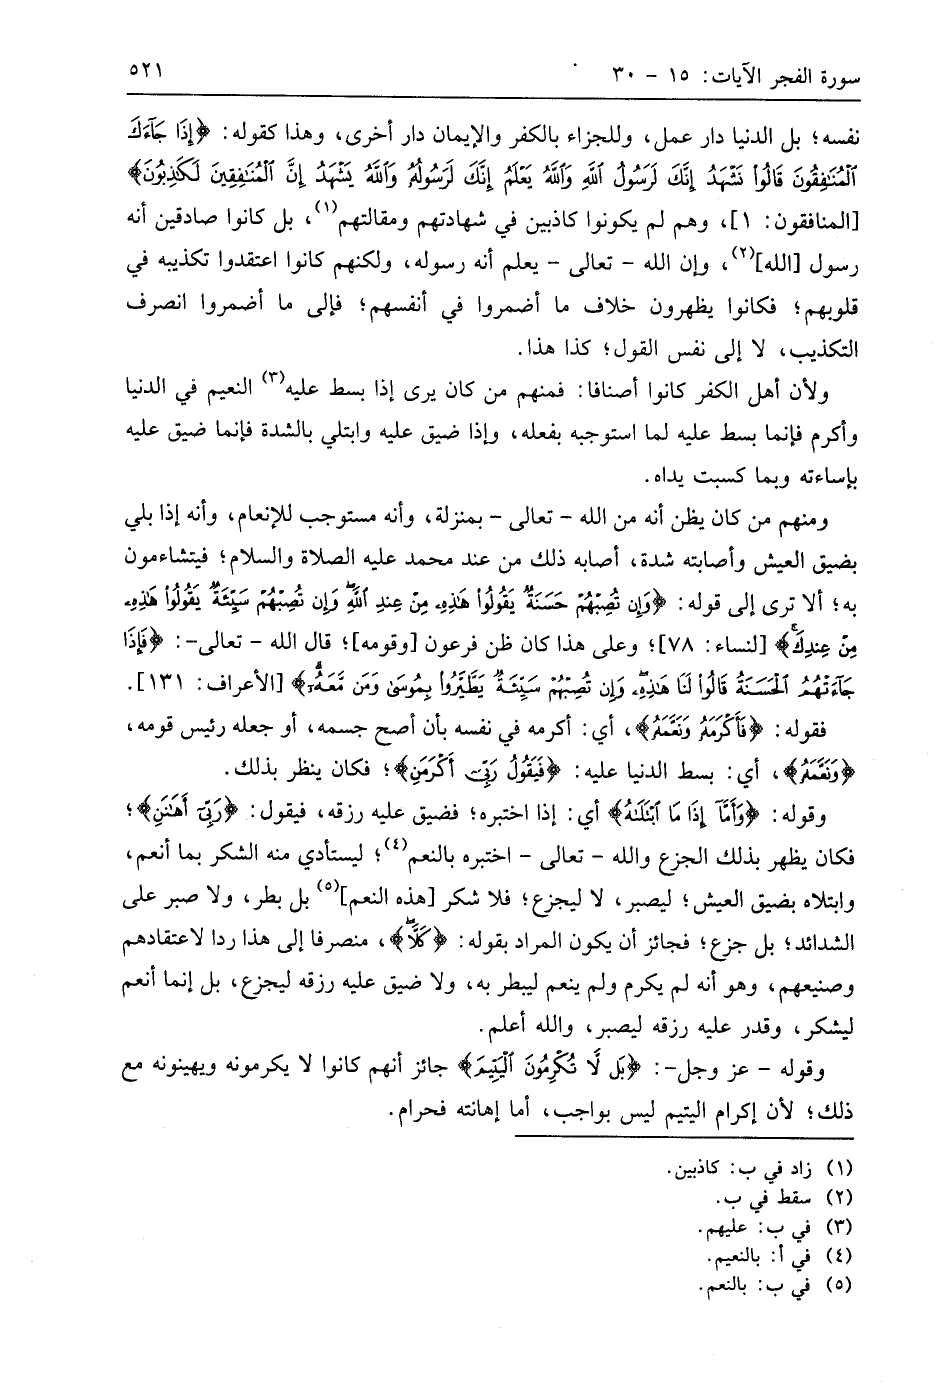 سورة الفجر الآيات: ١٥ - ٣٠ ٥٢١
نفسه؛ بل الدنيا دار عمل، وللجزاء بالكفر والإيمان دار أخرى، وهذا كقوله: ﴿إِذَا جَآءَكَ
ٱلْمُنَٰفِقُونَ قَالُوا۟ نَشْهَدُ إِنَّكَ لَرَسُولُ ٱللَّهِ وَٱللَّهُ يَعْلَمُ إِنَّكَ لَرَسُولُهُۥ وَٱللَّهُ يَشْهَدُ إِنَّ ٱلْمُنَٰفِقِينَ لَكَٰذِبُونَ﴾
[المنافقون: ١]، وهم لم يكونوا كاذبين في شهادتهم ومقالتهم(١)، بل كانوا صادقين أنه
رسول [الله](٢)، وإن الله - تعالى - يعلم أنه رسوله، ولكنهم كانوا اعتقدوا تكذيبه في
قلوبهم؛ فكانوا يظهرون خلاف ما أضمروا في أنفسهم؛ فإلى ما أضمروا انصرف
التكذيب، لا إلى نفس القول؛ كذا هذا.
ولأن أهل الكفر كانوا أصنافا: فمنهم من كان يرى إذا بسط عليه(٣) النعيم في الدنيا
وأكرم فإنما بسط عليه لما استوجبه بفعله، وإذا ضيق عليه وابتلي بالشدة فإنما ضيق عليه
بإساءته وبما كسبت يداه.
ومنهم من كان يظن أنه من الله - تعالى - بمنزلة، وأنه مستوجب للإنعام، وأنه إذا بلي
بضيق العيش وأصابته شدة، أصابه ذلك من عند محمد عليه الصلاة والسلام؛ فيتشاءمون
به؛ ألا ترى إلى قوله: ﴿وَإِن تُصِبْهُمْ حَسَنَةٌ يَقُولُوا۟ هَٰذِهِۦ مِنْ عِندِ ٱللَّهِۖ وَإِن تُصِبْهُمْ سَيِّئَةٌ يَقُولُوا۟ هَٰذِهِۦ
مِنْ عِندِكَۚ﴾ [النساء: ٧٨]؛ وعلى هذا كان ظن فرعون [وقومه]؛ قال الله - تعالى-: ﴿فَإِذَا
جَآءَتْهُمُ ٱلْحَسَنَةُ قَالُوا۟ لَنَا هَٰذِهِۦۖ وَإِن تُصِبْهُمْ سَيِّئَةٌ يَطَّيَّرُوا۟ بِمُوسَىٰ وَمَن مَّعَهُۥٓۗ﴾ [الأعراف: ١٣١].
فقوله: ﴿فَأَكْرَمَهُۥ وَنَعَّمَهُۥ﴾، أي: أكرمه في نفسه بأن أصح جسمه، أو جعله رئيس قومه،
﴿وَنَعَّمَهُۥ﴾، أي: بسط الدنيا عليه: ﴿فَيَقُولُ رَبِّىٓ أَكْرَمَنِ﴾؛ فكان ينظر بذلك.
وقوله: ﴿وَأَمَّآ إِذَا مَا ٱبْتَلَىٰهُ﴾ أي: إذا اختبره؛ فضيق عليه رزقه، فيقول: ﴿رَبِّىٓ أَهَٰنَنِ﴾؛
فكان يظهر بذلك الجزع والله - تعالى - اختبره بالنعم(٤)؛ ليستأدي منه الشكر بما أنعم،
وابتلاه بضيق العيش؛ ليصبر، لا ليجزع؛ فلا شكر [هذه النعم](٥) بل بطر، ولا صبر على
الشدائد؛ بل جزع؛ فجائز أن يكون المراد بقوله: ﴿كَلَّاۖ﴾، منصرفا إلى هذا ردا لاعتقادهم
وصنيعهم، وهو أنه لم يكرم ولم ينعم ليبطر به، ولا ضيق عليه رزقه ليجزع، بل إنما أنعم
ليشكر، وقدر عليه رزقه ليصبر، والله أعلم.
وقوله - عز وجل-: ﴿بَل لَّا تُكْرِمُونَ ٱلْيَتِيمَ﴾ جائز أنهم كانوا لا يكرمونه ويهينونه مع
ذلك؛ لأن إكرام اليتيم ليس بواجب، أما إهانته فحرام.
(١) زاد في ب: كاذبين.
(٢) سقط في ب.
(٣) في ب: عليهم.
(٤) في أ: بالنعيم.
(٥) في ب: بالنعم.